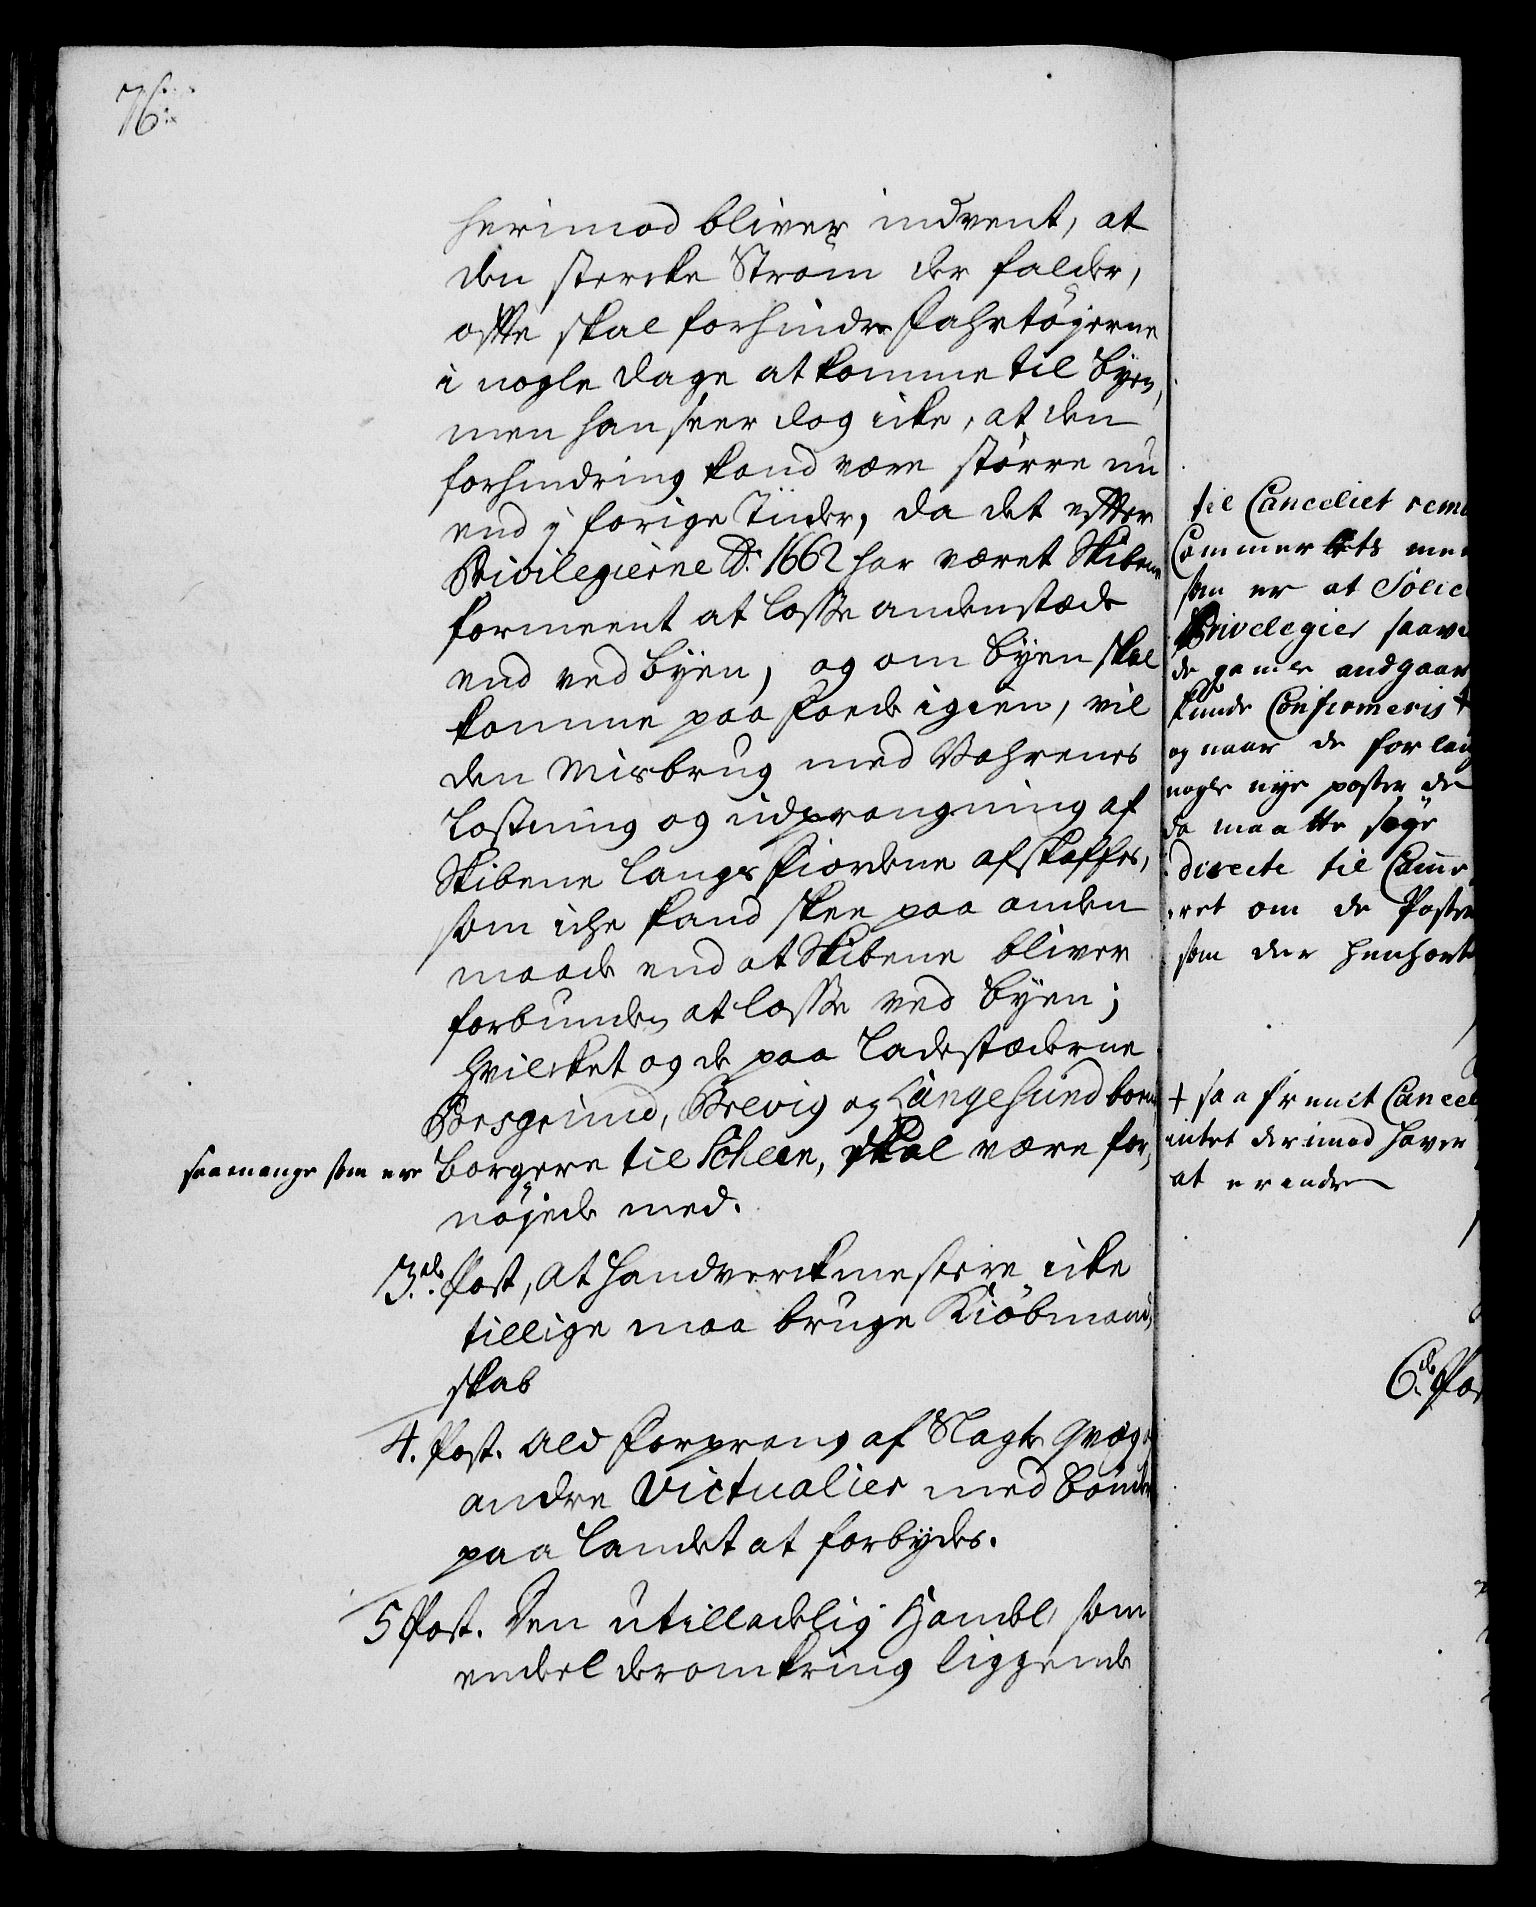 76.
herimod bliver indvent, at
den stercke Strøm der falder,
offte skal forhindre Fahrtøyerne
i nogle dage at komme til Byen,
men han seer dog icke, at den
forhindring kand være større nu
end i forige Tiider, da det effter
Privilegierne A: 1662 har været Skibene
formeent at losse andenstæds
end ved Byen, og om Byen skal
komme paa Foede igien, vil
den Misbrug med Vahrenes
Lossning og udprangning af
Skibene langs Fiordene afskaffes,
som iche kand skee paa anden
maade end at Skibene bliver
forbunden at losse ved Byen;
hvilcket og de paa Ladestæderne
Porsgrund, Brevig og Langesund boende
saamange som ere
borgere til Scheen, skal være for,,
nøyede med.
3de Post, At Handverckmestere icke
tillige maa bruge Kiøbmand,,
skab
4. Post. Ald Forprang af Slagte Qvæg
andre Victualier med Bønder
paa Landet at forbydes.
5 Post. Den utilladelig Handel, som
endeel deromkring liggende
til Canceliet
Commer
som er at
Privelegier
de gamle
kunde Confirmeris +
og naar de
nogle nye poster
da maatte søge
directe til
om de Poster
som der
+ saa fremt
intet derimod haver
at erindre
6de